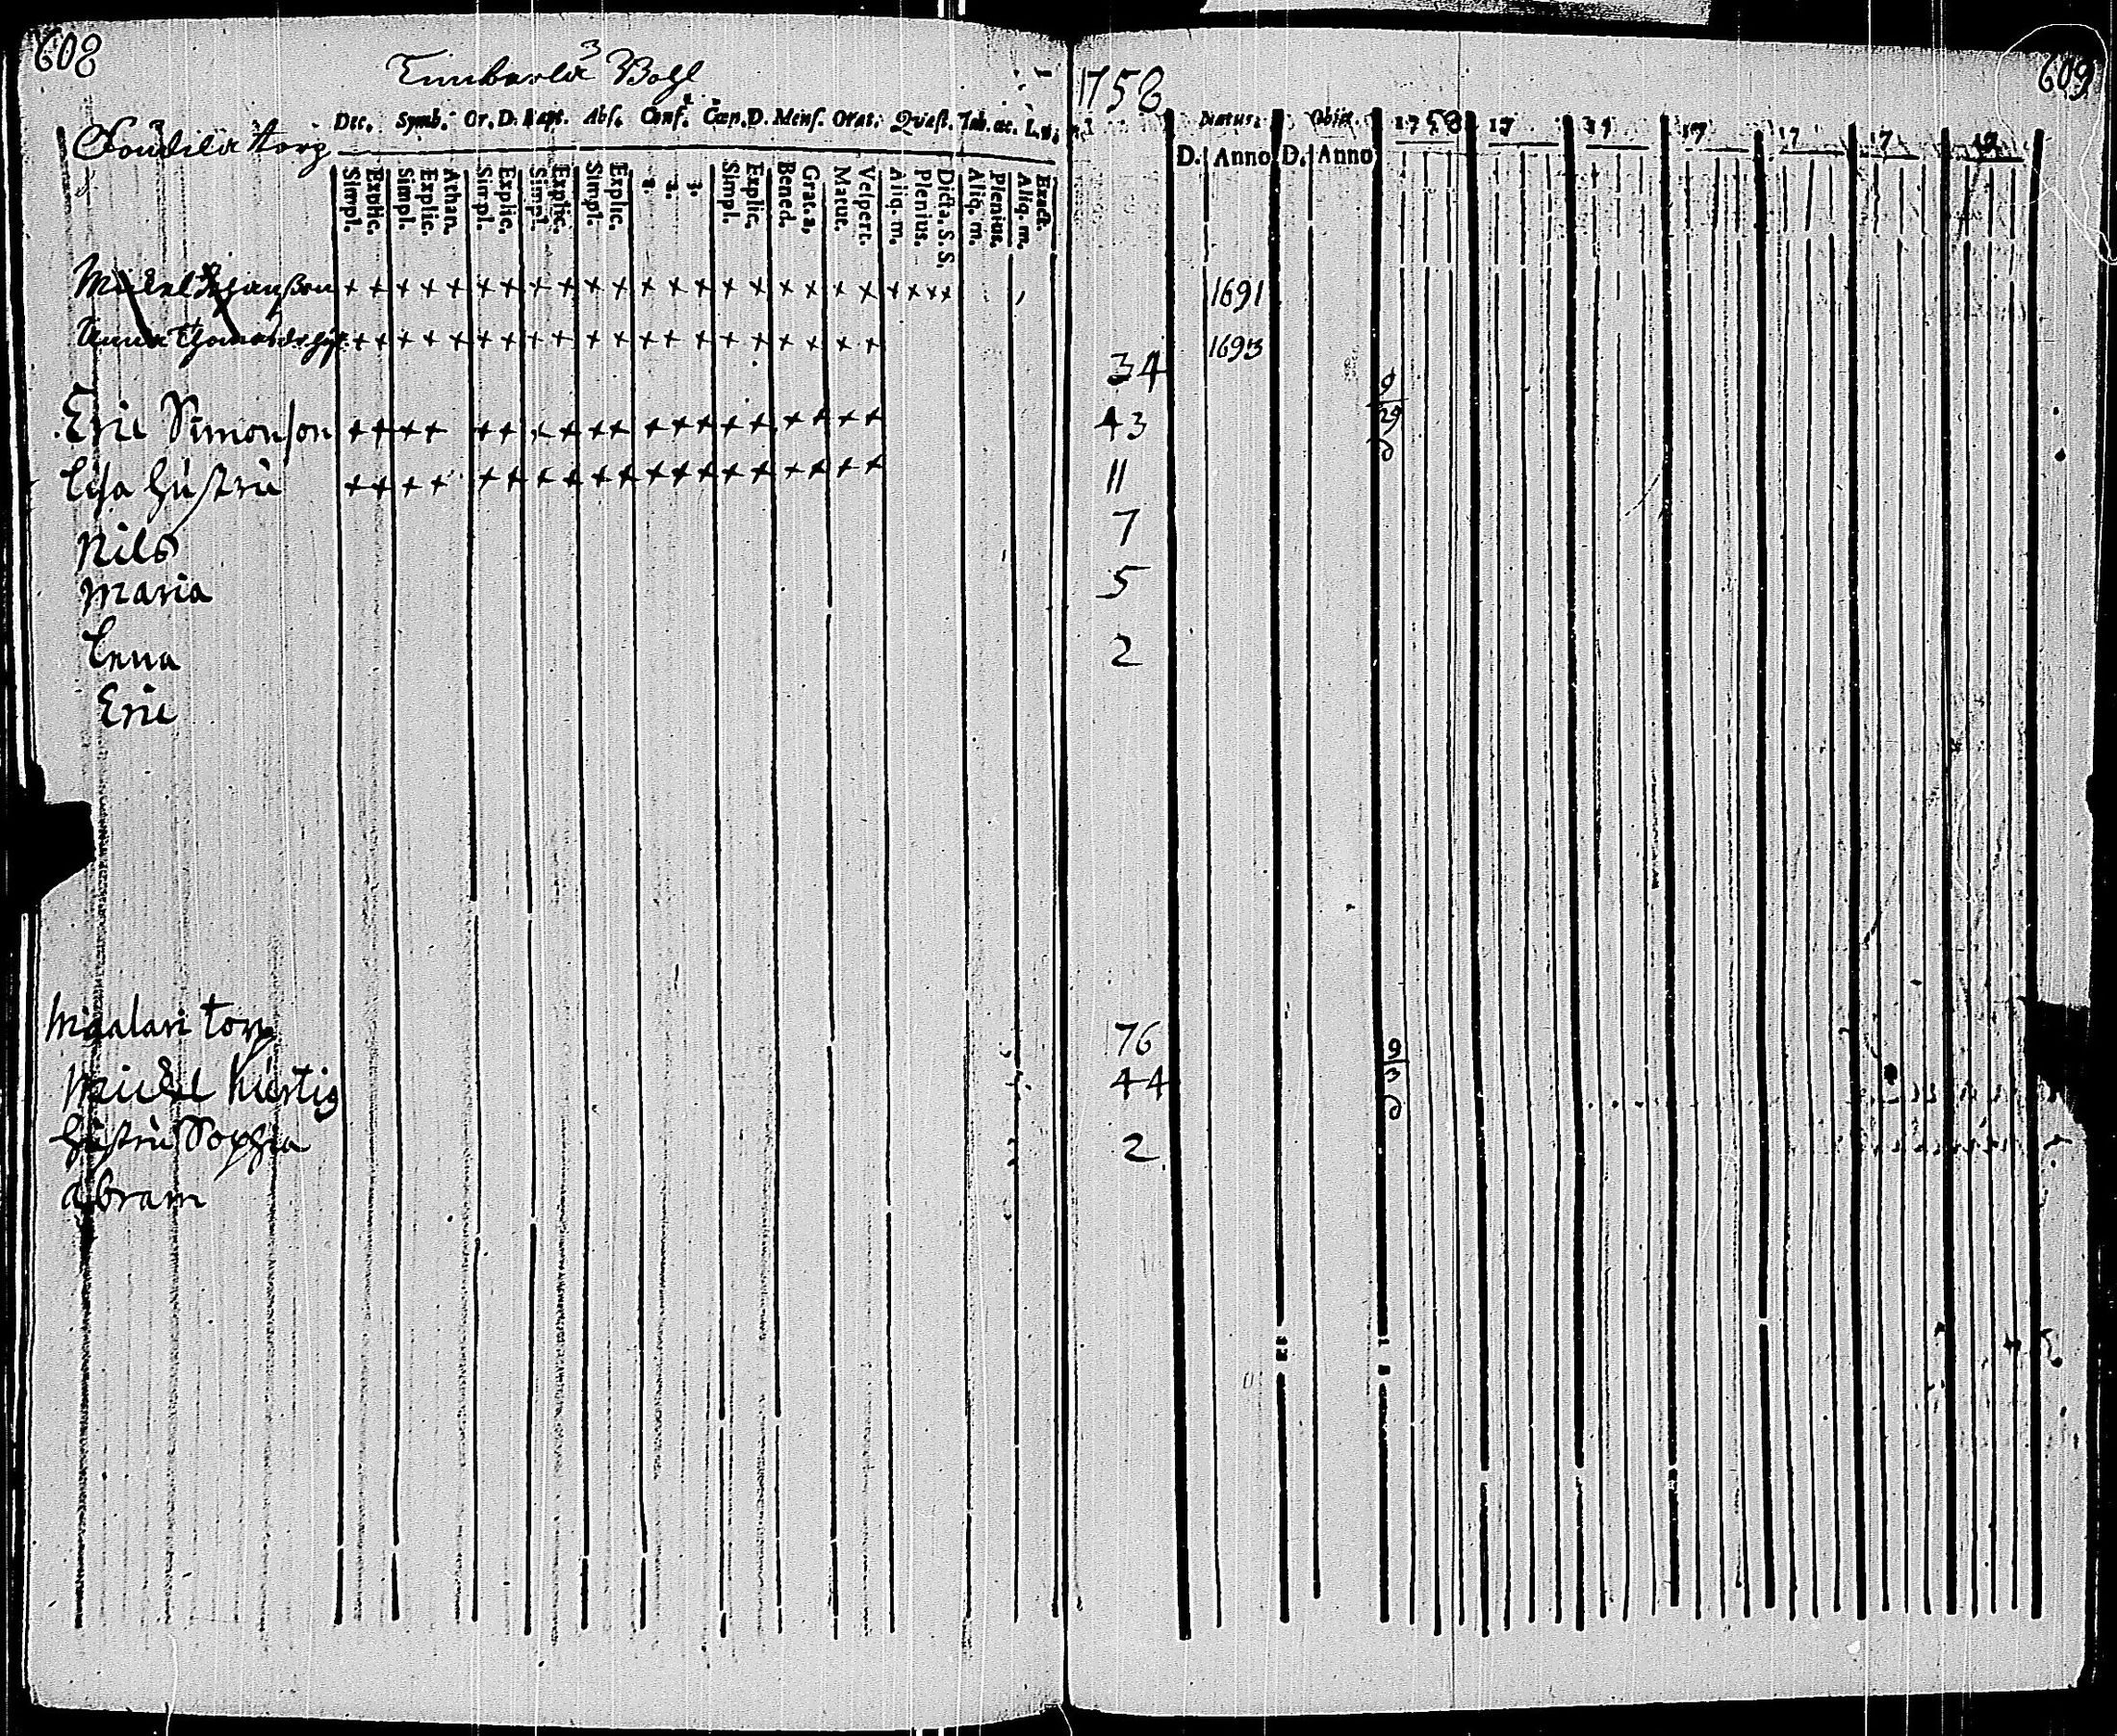 608
3
Bohl
torp
Dec. Symb. Or. D. Bapt. Abs. Conf. Cœn. D. Mens. Orat. Quæst. Tab. œc.
Simpl. Explic. Simpl. Explic. Athan. Simpl. Explic. Simpl. Explic. Simpl. Explic. 1. 2. 3. Simpl. Explic. Bened. Grat. a. Matut. Vespert. Aliq. m. Plenius. Dicta. S. S. Aliq. m. Plenius. Aliq. m. Exact.
Michel
Anna
Eric Simonson
Lisa hustru
Nils
Maria
Lena
Eric
torp
Michel Hurtig
hustru Sophia
Abram
1758
609
Natus. Obiit. 1758 17 17 17 17 17 17
D. Anno D. Anno
1691
1693
34
43
9
29
11
7
5
2
76
44
9
3
2